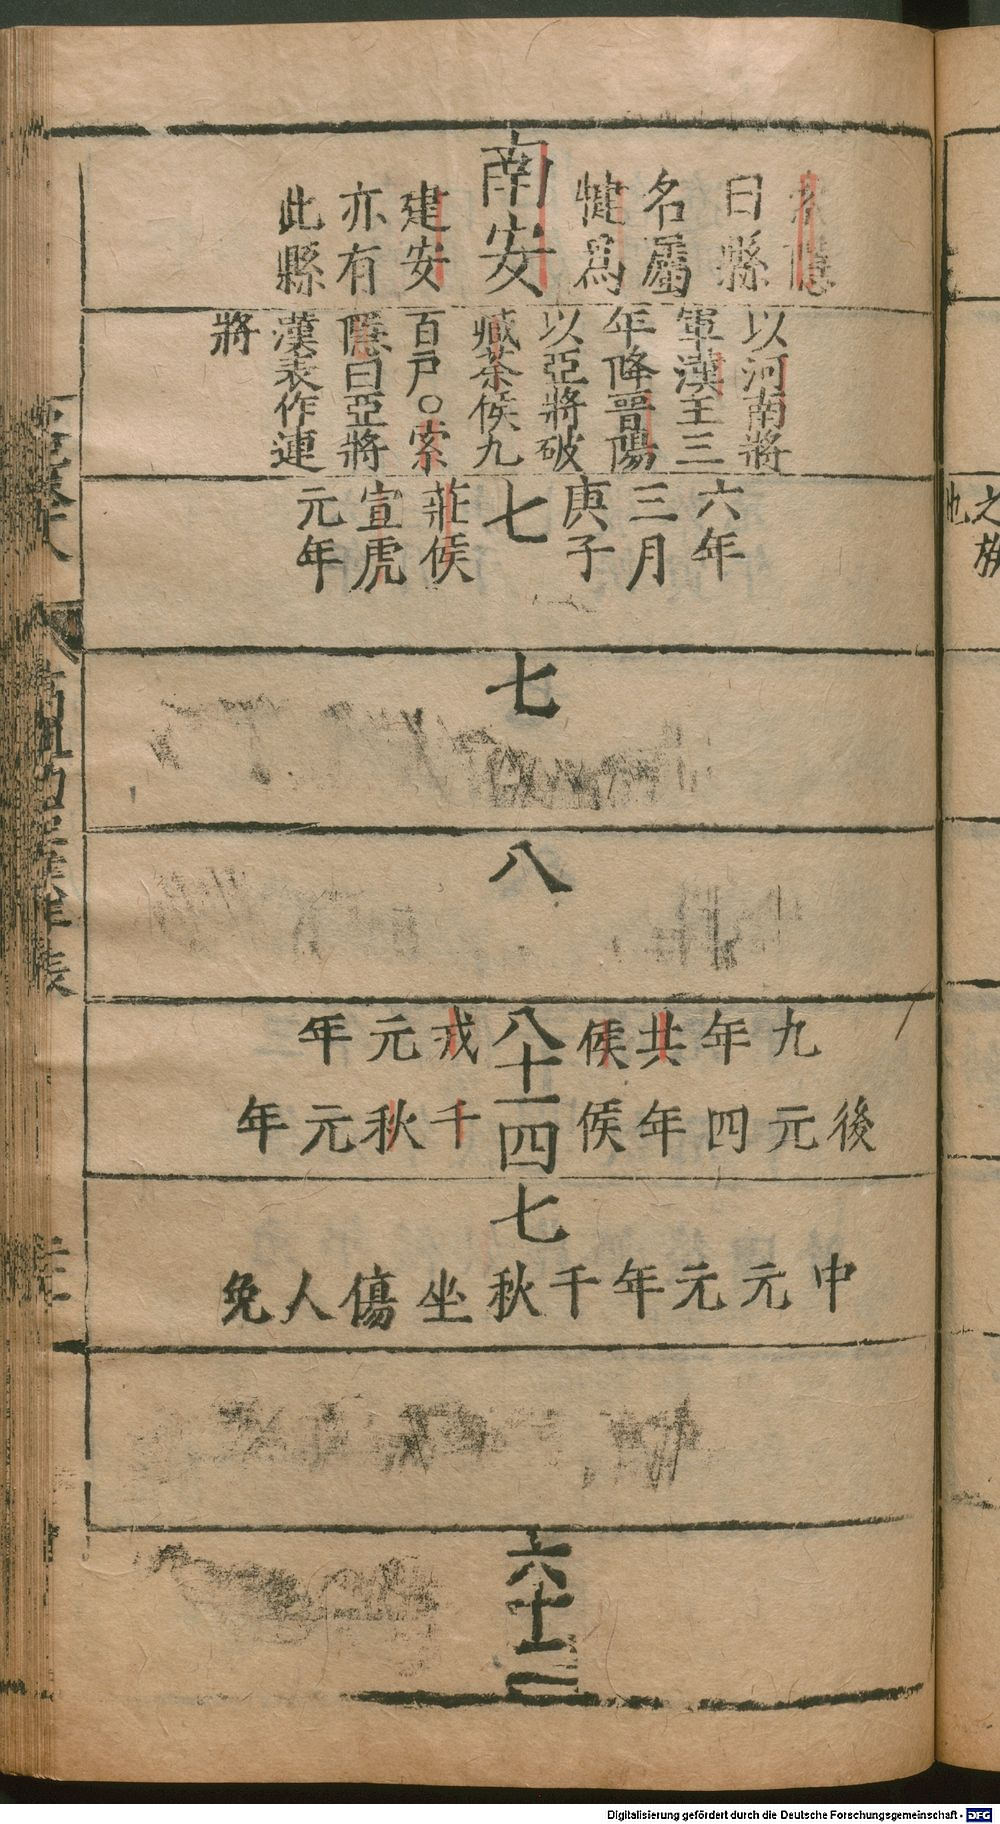 之族
也
索隱
曰縣
名屬
犍爲
南安
建安
亦有
此縣
以河南將
軍漢王三
年降晉陽
以亞將破
臧荼侯九
百戶○索
隱曰亞將
漢表作連
將
六年
三月
庚子
七
莊侯
宣虎
元年
七
八
八
九年共侯戎元年
十一
四
後元四年侯千秋元年
七
中元元年千秋坐傷人免
六十三
Digitalisierung gefördert durch die Deutsche Forschungsgemeinschaft - DFG